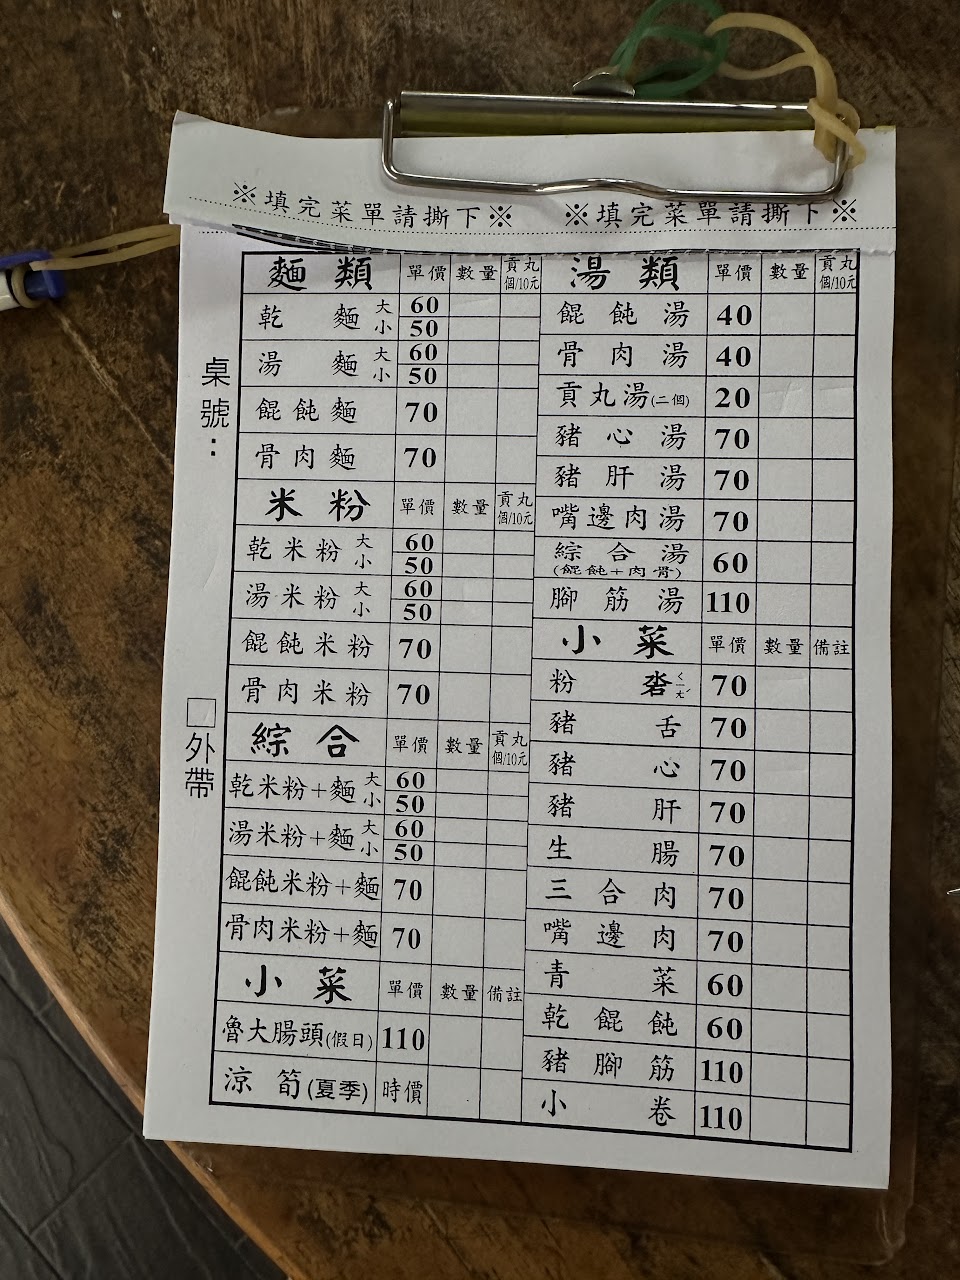 ※填完菜單請撕下※ ※填完菜單請撕下※
桌號：
□外帶
麵類 單價 數量 貢丸 個/10元
乾麵 大 60
小 50
湯麵 大 60
小 50
餛飩麵 70
骨肉麵 70
米粉 單價 數量 貢丸 個/10元
乾米粉 大 60
小 50
湯米粉 大 60
小 50
餛飩米粉 70
骨肉米粉 70
綜合 單價 數量 貢丸 個/10元
乾米粉+麵 大 60
小 50
湯米粉+麵 大 60
小 50
餛飩米粉+麵 70
骨肉米粉+麵 70
小菜 單價 數量 備註
魯大腸頭(假日) 110
涼筍(夏季) 時價
湯類 單價 數量 貢丸 個/10元
餛飩湯 40
骨肉湯 40
貢丸湯(二個) 20
豬心湯 70
豬肝湯 70
嘴邊肉湯 70
綜合湯 60
(餛飩+肉骨)
腳筋湯 110
小菜 單價 數量 備註
粉 ㄑㄧㄤˊ 70
豬舌 70
豬心 70
豬肝 70
生腸 70
三合肉 70
嘴邊肉 70
青菜 60
乾餛飩 60
豬腳筋 110
小卷 110